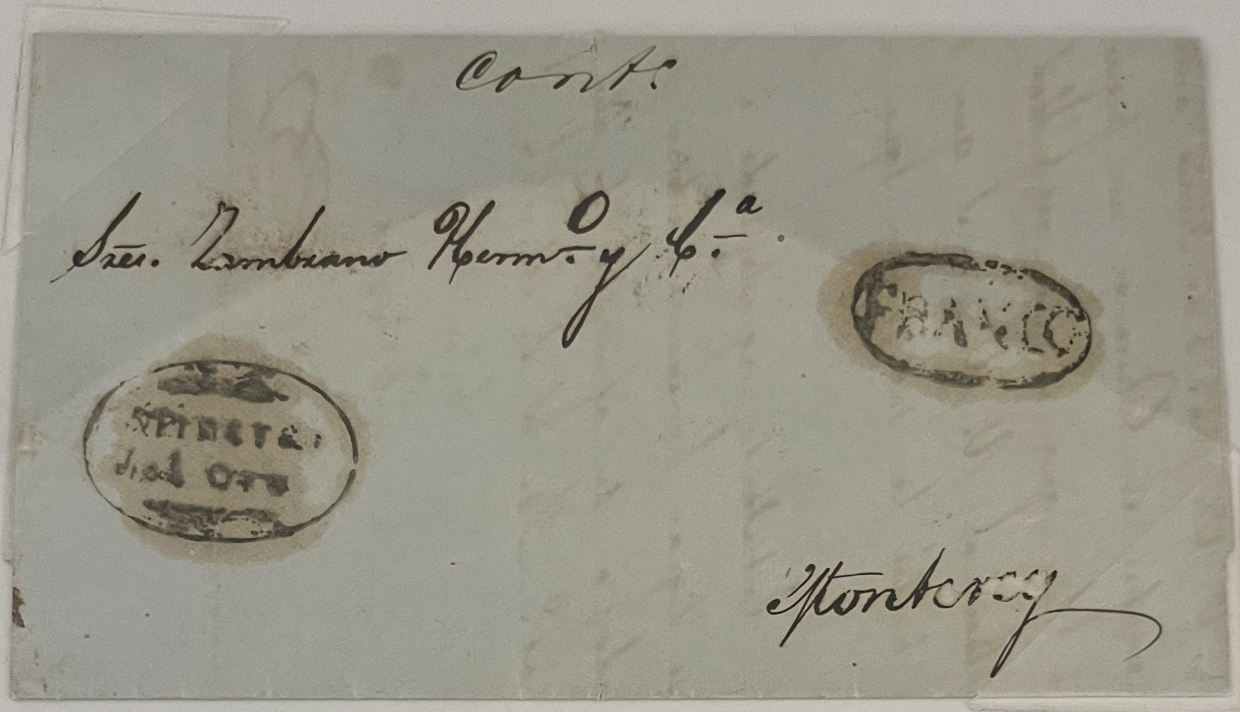 Cont.
Sres. Zambrano Hermo. y Ca.
FRANCO
Mineral
del Oro
Monterey